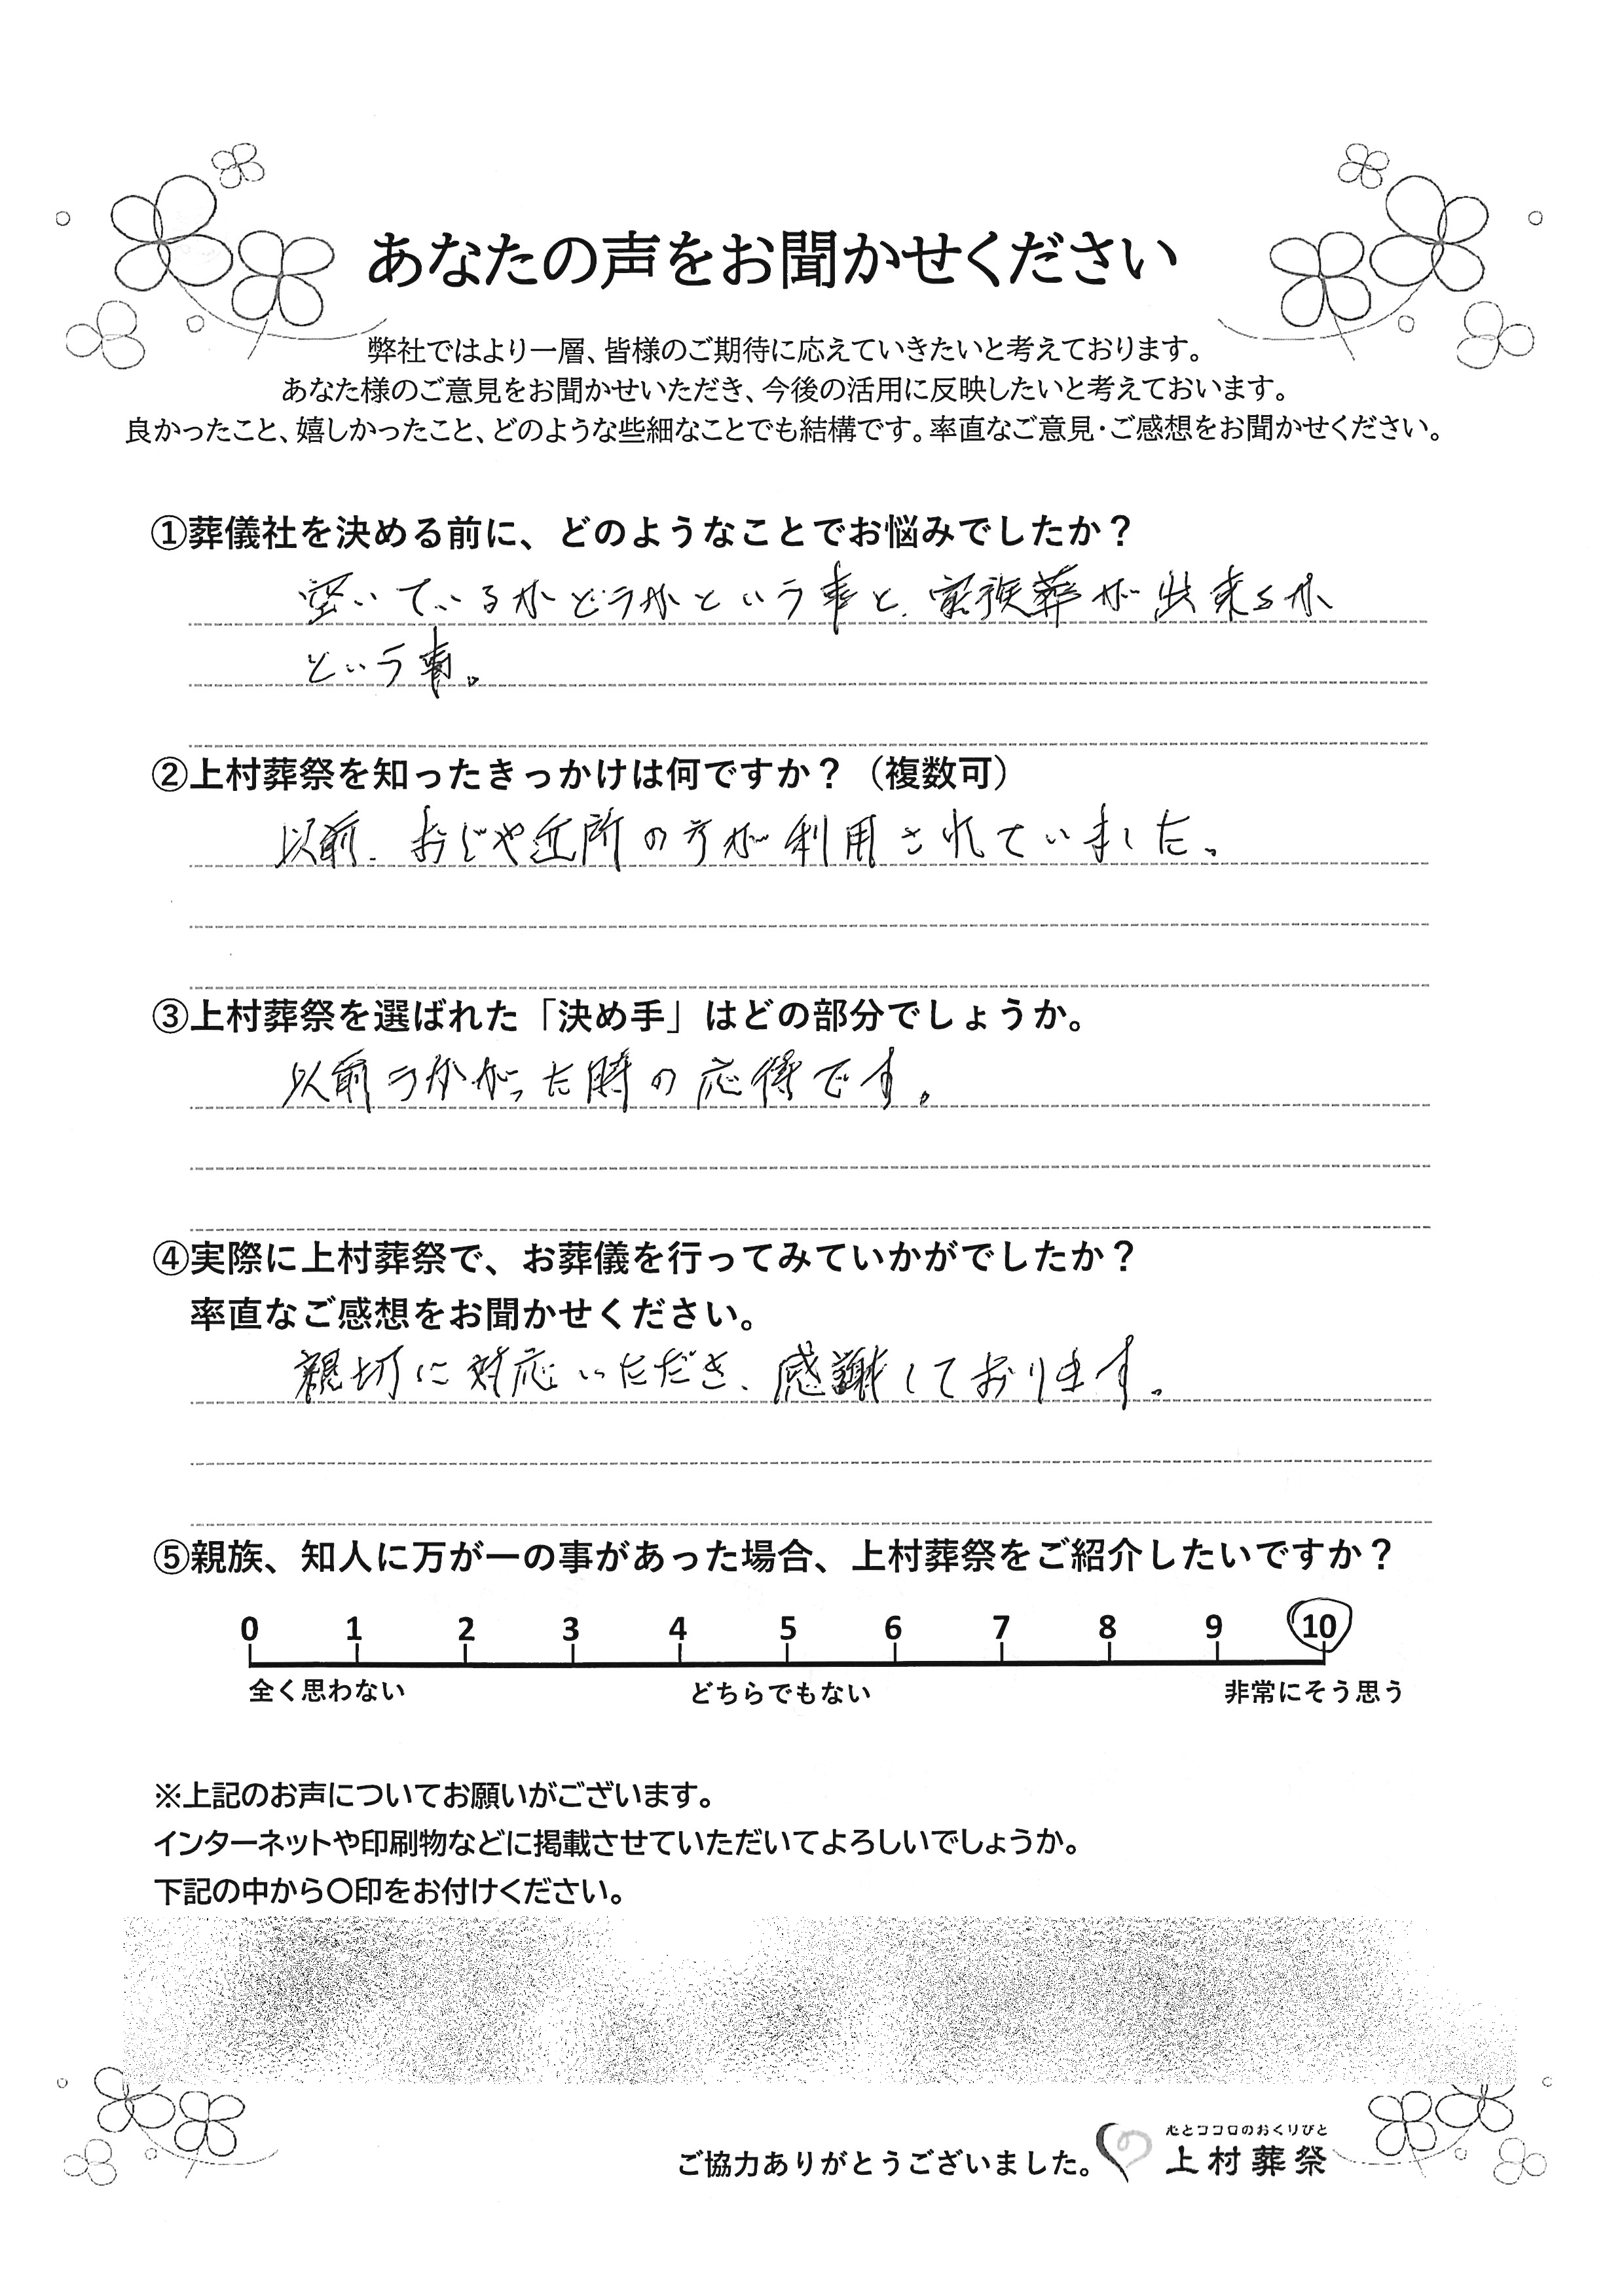 あなたの声をお聞かせください
弊社ではより一層、皆様のご期待に応えていきたいと考えております。
あなた様のご意見をお聞かせいただき、今後の活用に反映したいと考えておいます。
良かったこと、嬉しかったこと、どのような些細なことでも結構です。率直なご意見・ご感想をお聞かせください。
①葬儀社を決める前に、どのようなことでお悩みでしたか？
空いているかどうかという事と、家族葬が出来るか
という事。
②上村葬祭を知ったきっかけは何ですか？（複数可）
以前、おじや近所の方が利用されていました。
③上村葬祭を選ばれた「決め手」はどの部分でしょうか。
以前うかがった時の応待です。
④実際に上村葬祭で、お葬儀を行ってみていかがでしたか？
率直なご感想をお聞かせください。
親切に対応いただき、感謝しております。
⑤親族、知人に万が一の事があった場合、上村葬祭をご紹介したいですか？
0 1 2 3 4 5 6 7 8 9 10
全く思わない どちらでもない 非常にそう思う
※上記のお声についてお願いがございます。
インターネットや印刷物などに掲載させていただいてよろしいでしょうか。
下記の中から〇印をお付けください。
心とココロのおくりびと
ご協力ありがとうございました。 上村葬祭